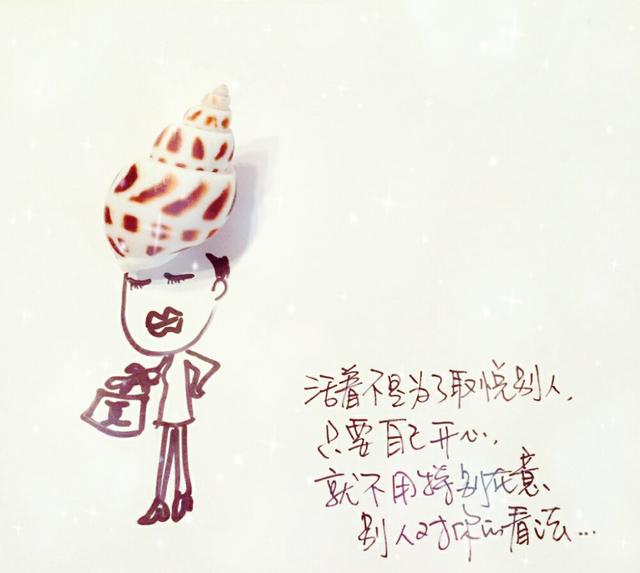 活着不是为了取悦别人,
只要自己开心,
就不用特别在意、
别人对你的看法...